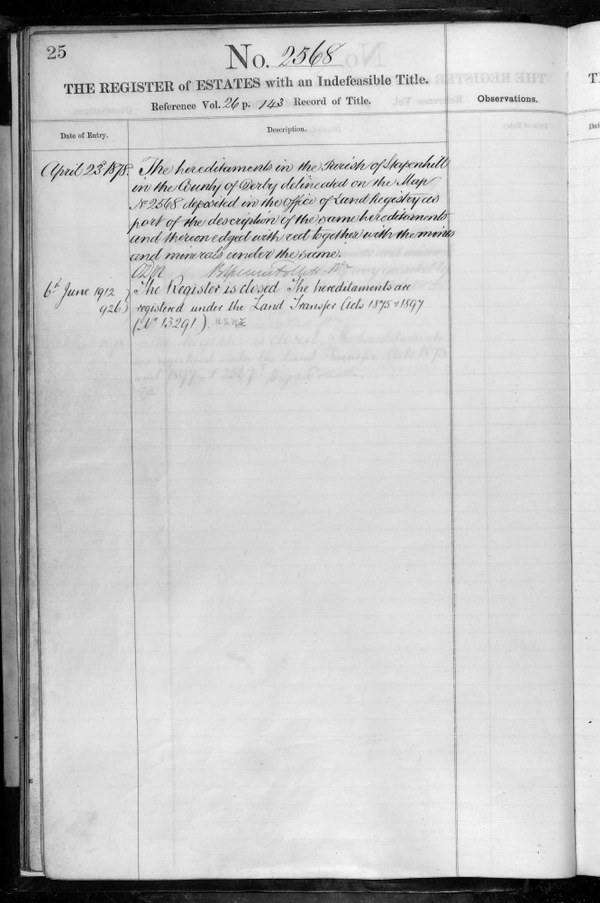 25
No. 2568
THE REGISTER of ESTATES with an Indefeasible Title.
Reference Vol. 26 p. 143 Record of Title.
Observations.
Date of Entry.
Description.
April 23d 1878.
The hereditaments in the Parish of Stapenhill
in the County of Derby delineated on the Map
No 2568 deposited in the Office of Land Registry as
part of the description of the same hereditaments
and thereon edged with red together with the mines
and minerals under the same.
6th June 1912
926
The Register is closed The hereditaments are
registered under the Land Transfer Acts 1875 & 1897
(No 13291).